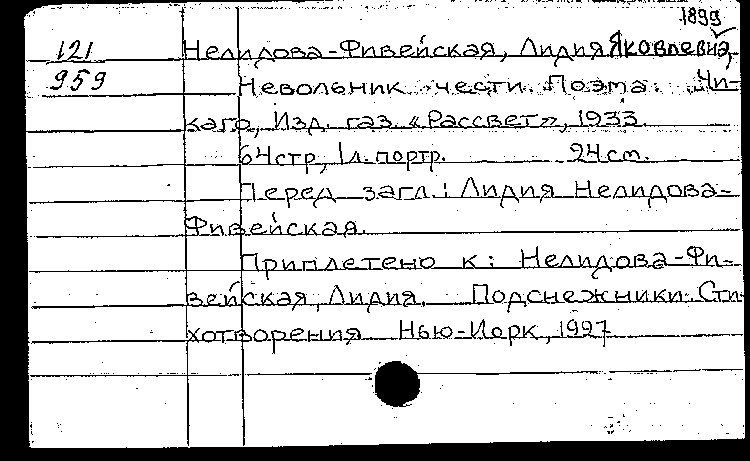 1899
121 Нелидова-Фивейская, Лидия Яковлевна,
959 Невольник чести. Поэма. Чи-
каго, Изд. газ. «Рассвет», 1933.
64стр, 1л. портр. 24см.
Перед загл.: Лидия Нелидова-
Фивейская.
Приплетено к: Нелидова-Фи-
вейская, Лидия. Подснежники. Сти-
хотворения Нью-Иорк, 1927